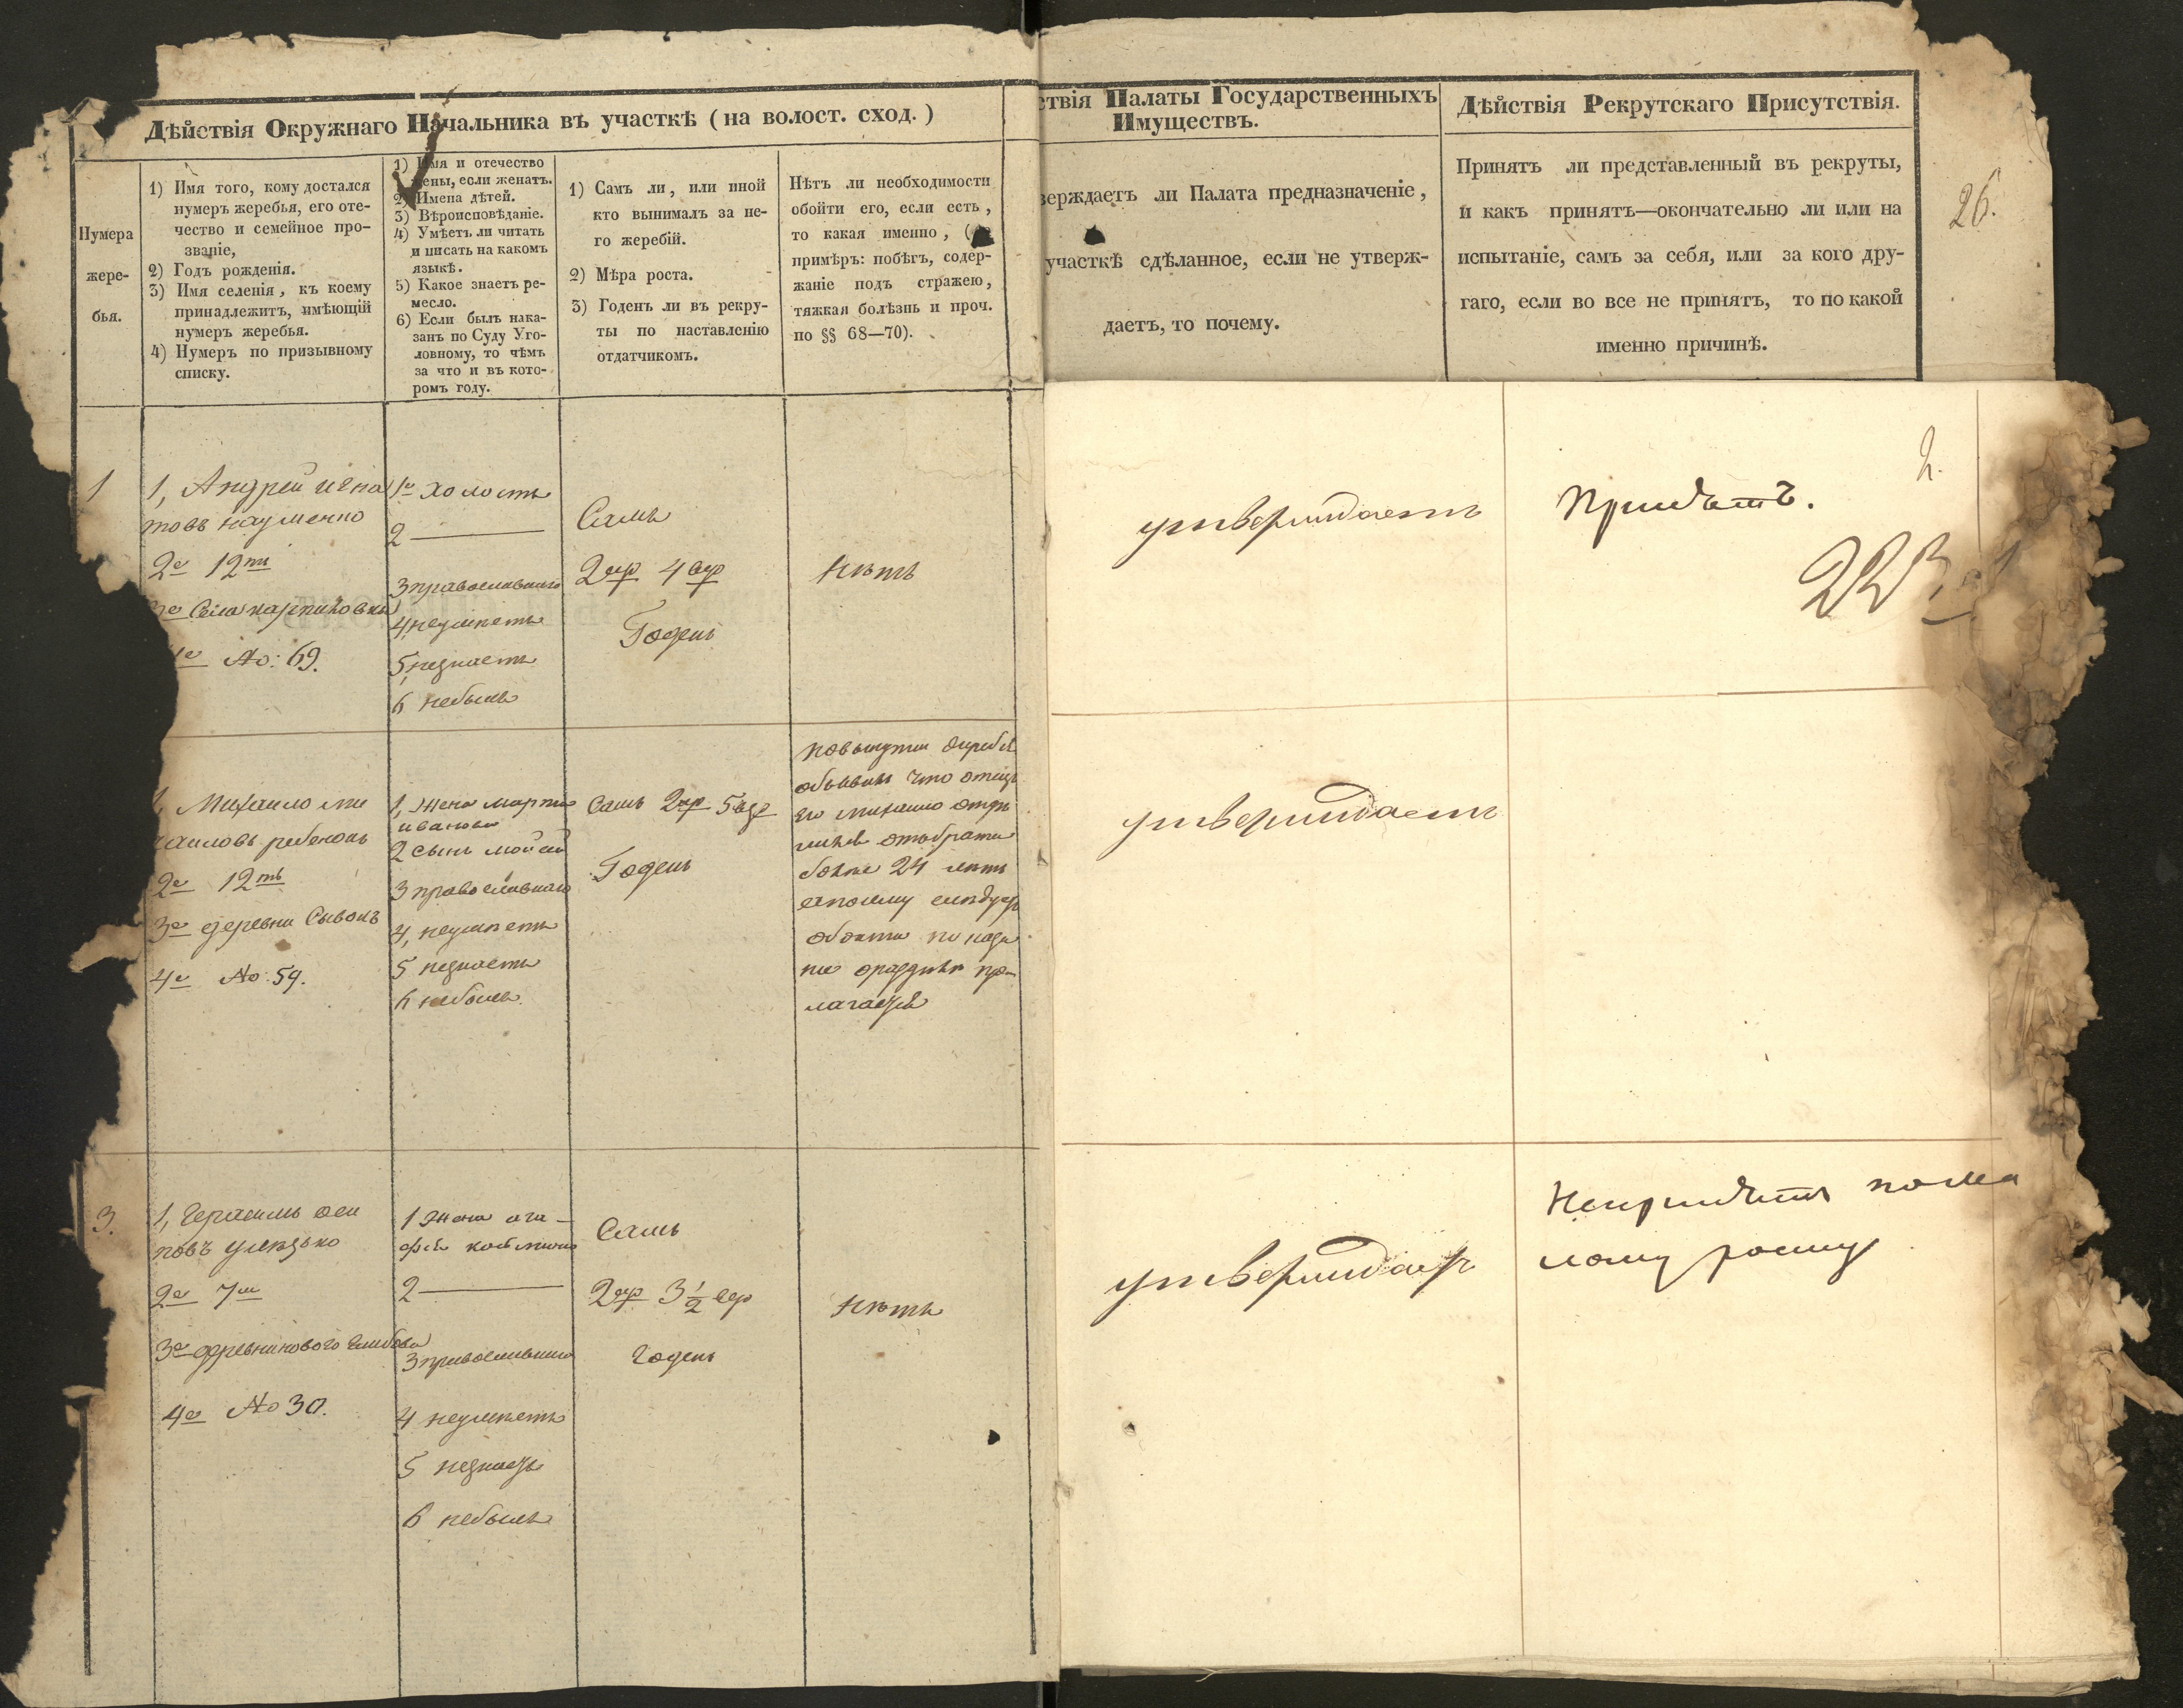 Дѣйствія Окружнаго Начальника въ участкѣ ( на волост. сход. )
Нумера
жере-
бья.
1) Имя того, кому достался
нумеръ жеребья, его оте-
чество и семейное про-
званіе,
2) Годъ рожденія.
3) Имя селенія, къ коему
принадлежитъ, имѣющій
нумеръ жеребья.
4) Нумеръ по призывному
списку.
1) Имя и отечество
жены, если женатъ.
2) Имена дѣтей.
3) Вѣроисповѣданіе.
4) Умѣетъ ли читать
и писать на какомъ
языкѣ.
5) Какое знаетъ ре-
месло.
6) Если былъ нака-
занъ по Суду Уго-
ловному, то чѣмъ
за что и въ кото-
ромъ году.
1) Самъ ли, или иной
кто вынималъ за не-
го жеребій.
2) Мѣра роста.
3) Годенъ ли въ рекру-
ты по наставленію
отдатчикомъ.
Нѣтъ ли необходимости
обойти его, если есть,
то какая именно, (
примѣръ: побѣгъ, содер-
жаніе подъ стражею,
тяжкая болѣзнь и проч.
по §§ 68—70).
ствія Палаты Государственныхъ
Имуществъ.
верждаетъ ли Палата предназначеніе,
участкѣ сдѣланное, если не утверж-
даетъ, то почему.
Дѣйствія Рекрутскаго Присутствія.
Принятъ ли представленный въ рекруты,
и какъ принятъ—окончательно ли или на
испытаніе, самъ за себя, или за кого дру-
гаго, если во все не принятъ, то по какой
именно причинѣ.
26.
2.
1
1, Андрей Игна
товъ Науменко
2е 12ть
3е Села Карпиловки
4е No: 69.
1е холостъ
2 —
3 православнаго
4, неумѣетъ
5, незнаетъ
6 небылъ
Самъ
2 ар 4 вер
Годенъ
Нѣтъ
утверждаетъ
Принятъ.
1, Михайло Ми
хайловъ
2е 12ть
3е деревни
4е No: 59.
1, Жена Марфа
Иванова
2 сынъ Мойсей
3 православнаго
4, неумѣетъ
5 незнаетъ
6 небылъ
Самъ 2 ар 5 вер
Годенъ
что отецъ
его Михайло
болѣе 24 лѣтъ
обойти
утверждаетъ
3.
1, Герасимъ Оси
повъ
2е 7ми
3е деревни Нового Глыбова
4е No 30.
1 Жена Ага-
фія
2 —
3 православнаго
4 неумѣетъ
5 незнаетъ
6 небылъ
Самъ
2 ар 3 1/2 вер
Годенъ
Нѣтъ
утверждаетъ
Непринятъ пома
лому росту